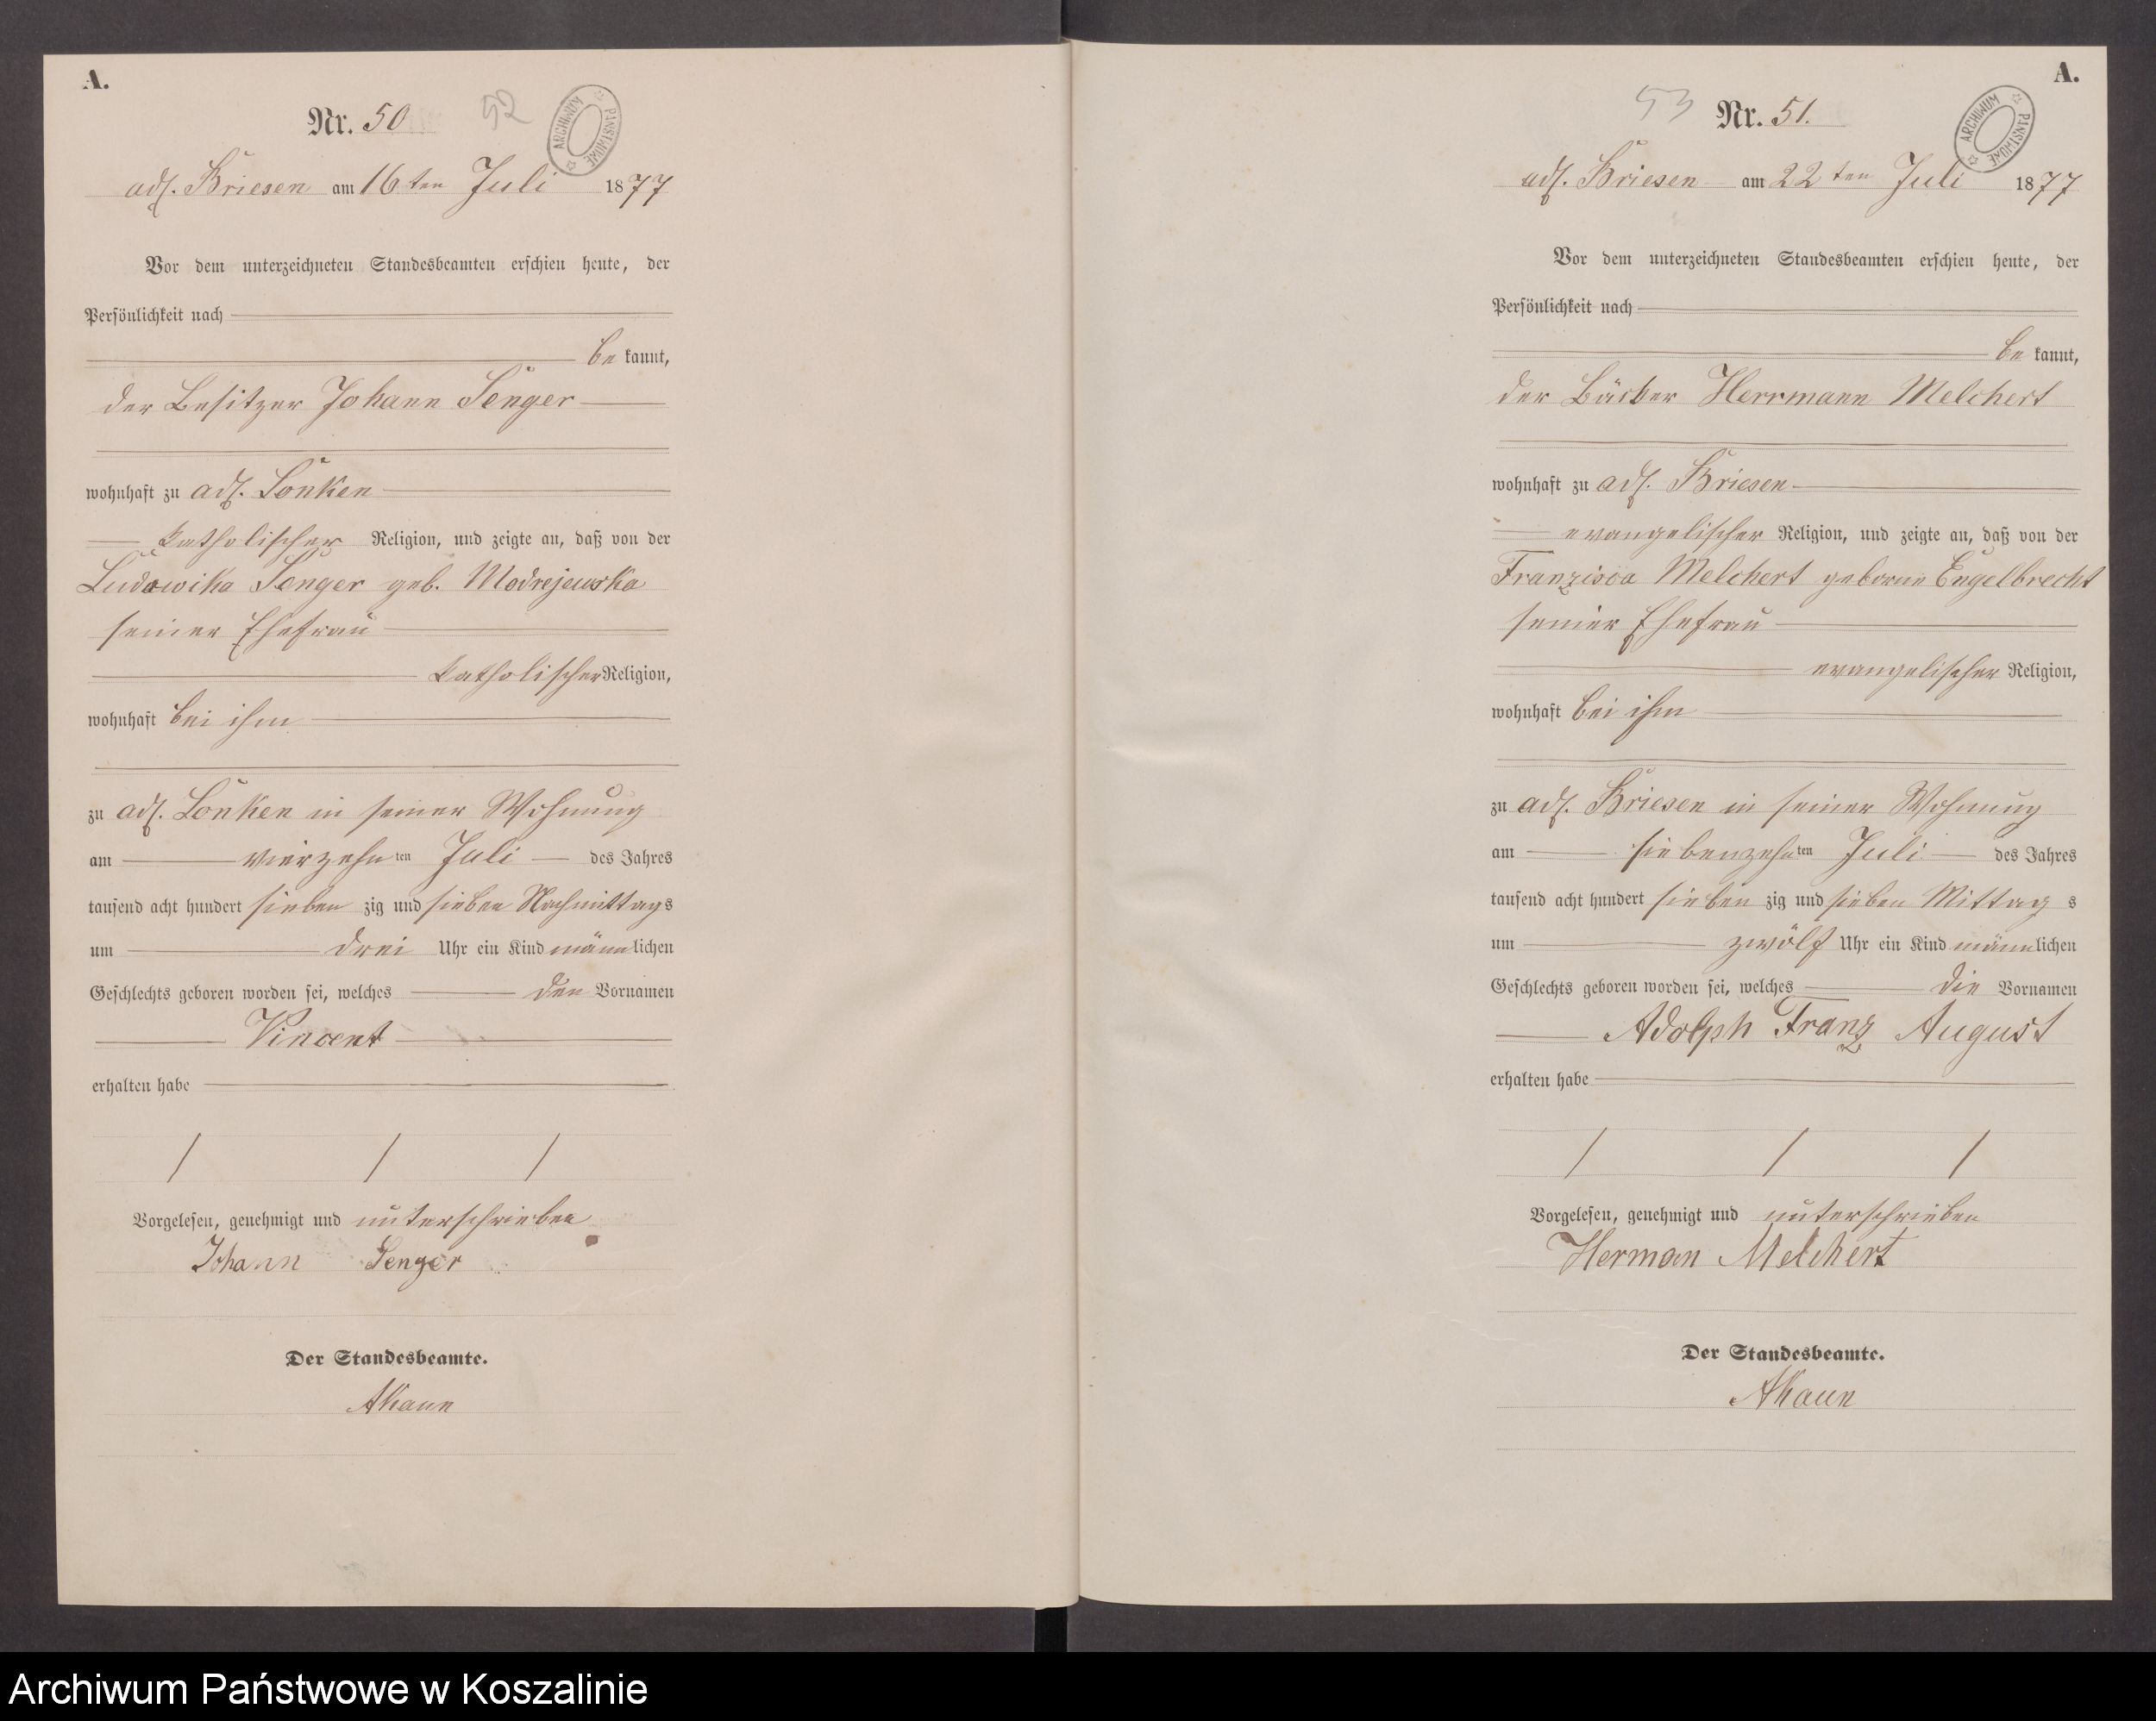 A.
Nr. 50
52
ARCHIWUM PAŃSTWOWE
adl. Briesen am 16ten Juli 1877
Vor dem unterzeichneten Standesbeamten erschien heute, der
Persönlichkeit nach
be kannt,
der Besitzer Johann Senger
wohnhaft zu adl. Lonken
katholischer Religion, und zeigte an, daß von der
Ludowika Senger geb. Modrejewska
seiner Ehefrau
katholischer Religion,
wohnhaft bei ihm
zu adl. Lonken in seiner Wohnung
am vierzehnten Juli des Jahres
tausend acht hundert sieben zig und sieben Nachmittags
um drei Uhr ein Kind männlichen
Geschlechts geboren worden sei, welches den Vornamen
Vincent
erhalten habe
Vorgelesen, genehmigt und unterschrieben
Johann Senger
Der Standesbeamte.
A.
53
Nr. 51.
ARCHIWUM PAŃSTWOWE
adl. Briesen am 22ten Juli 1877
Vor dem unterzeichneten Standesbeamten erschien heute, der
Persönlichkeit nach
be kannt,
der Bäcker Herrmann Melchert
wohnhaft zu adl. Briesen
evangelischer Religion, und zeigte an, daß von der
Franzisca Melchert geborne Engelbrecht
seiner Ehefrau
evangelischer Religion,
wohnhaft bei ihm
zu adl. Briesen in seiner Wohnung
am siebenzehnten Juli des Jahres
tausend acht hundert sieben zig und sieben Mittag s
um zwölf Uhr ein Kind männlichen
Geschlechts geboren worden sei, welches die Vornamen
Adolph Franz August
erhalten habe
Vorgelesen, genehmigt und unterschrieben
Herman Melchert
Der Standesbeamte.
Archiwum Państwowe w Koszalinie